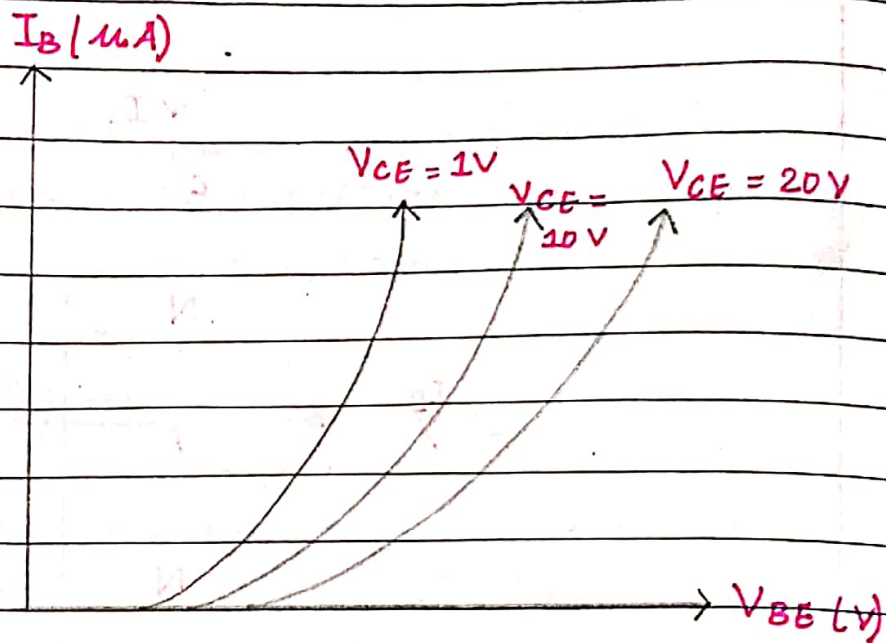 I_B (μA)
V_CE = 1V
V_CE = 20V
V_CE =
10 V
V_BE (V)